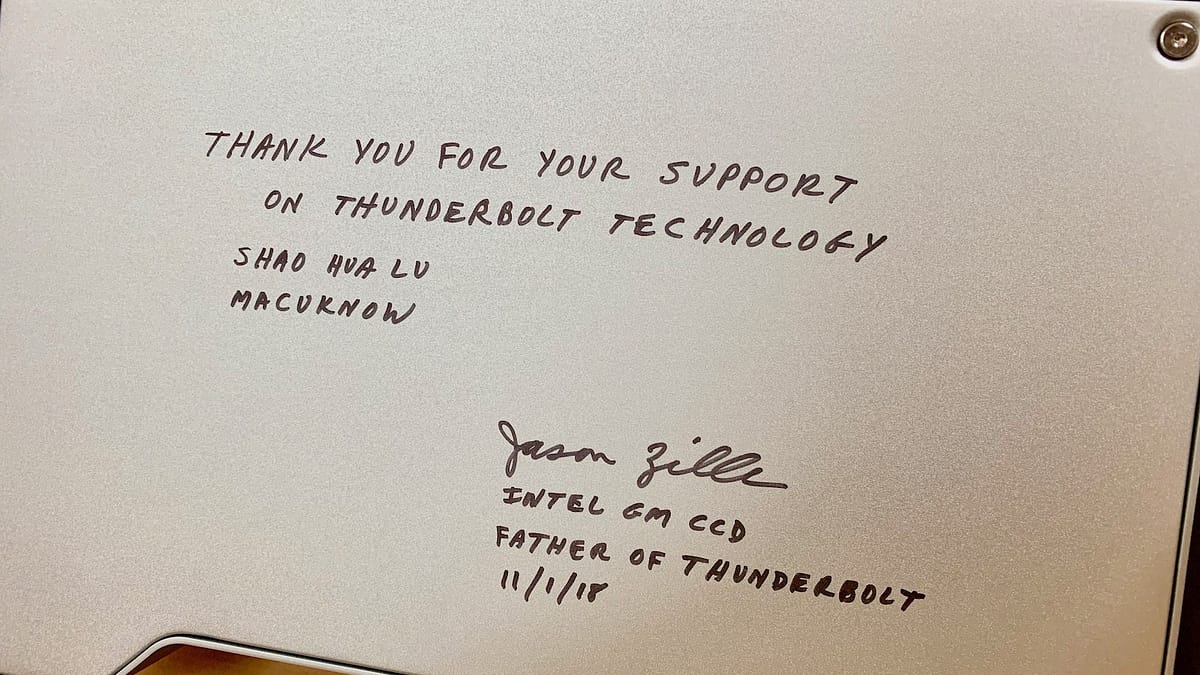 THANK YOU FOR YOUR SUPPORT
ON THUNDERBOLT TECHNOLOGY
SHAO HUA LU
MACUKNOW
Jason Ziller
INTEL GM CCD
FATHER OF THUNDERBOLT
11/1/18